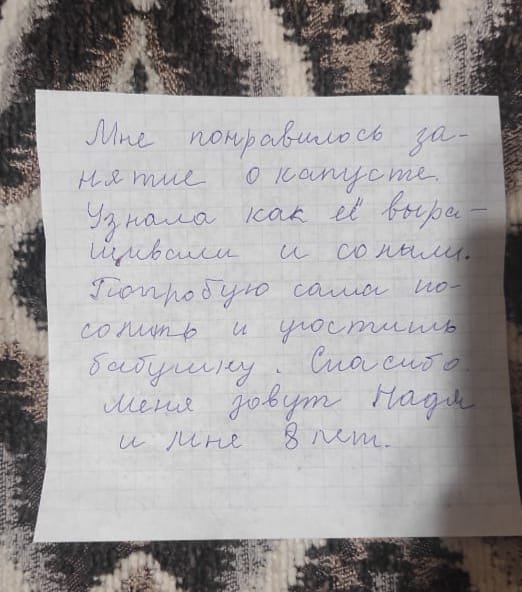 Мне понравилось за-
нятие о капусте.
Узнала как её выра-
щивали и солили.
Попробую сама по-
солить и угостить
бабушку. Спасибо
меня зовут Надя
и мне 8 лет.